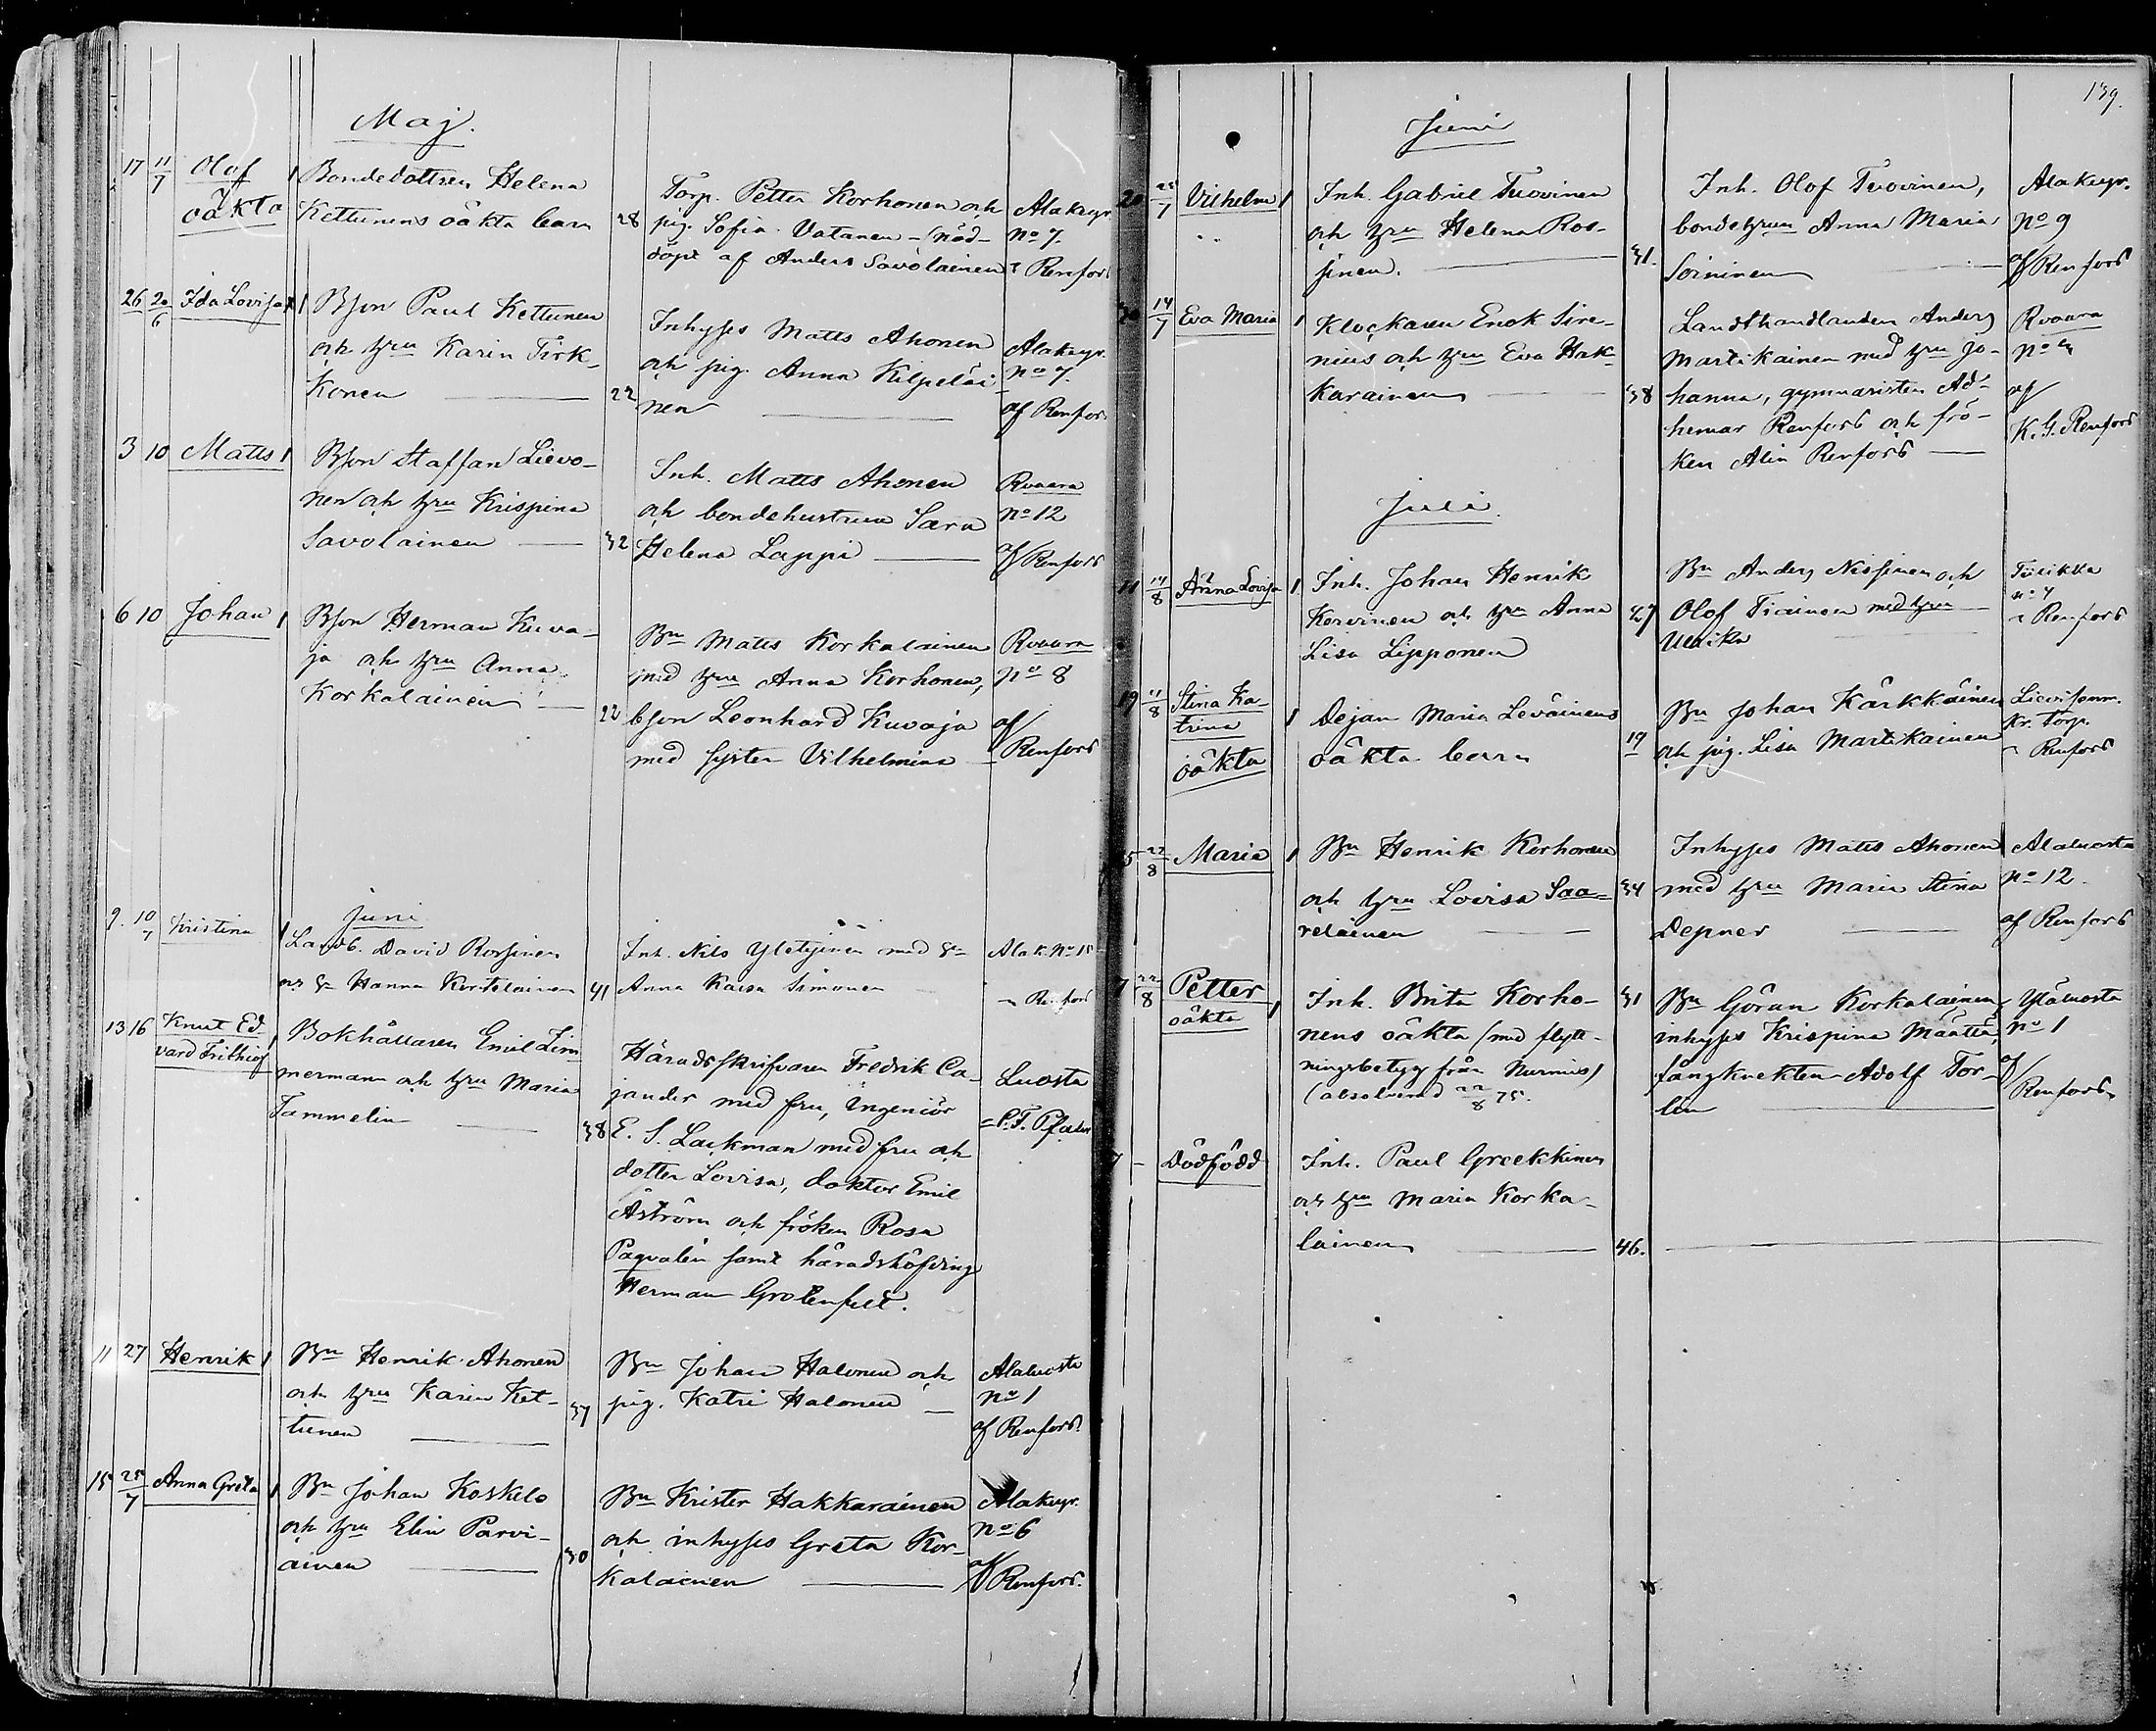 Maj.
17 11/7 Olof 1 Bondedottren Helena
oäkta Kettunens oäkta barn 28
Torp. Petter Korhonen och
pig. Sofia Vatanen - (nöd-
döpt af Anders Savolainen
Alakyr.
No 7.
Renfors
26 20/6 Ida Lovisa 1 Bson Paul Kettunen
och hru Karin Tirk-
konen 22
Inhyses Matts Ahonen
och pig. Anna Kilpeläi
nen
Alakyr.
No 7.
af Renfors
3 10 Matts 1 Bson Staffan Lievo-
nen och hru Krispina
Savolainen 32
Inh. Matts Ahonen
och bondehustrun Sara
Helena Lappi
Rvaara
No 12
af Renfors
6 10 Johan 1 Bson Herman Kuva-
ja och hru Anna
Korkalainen 22
Bn Matts Korkalainen
med hru Anna Korhonen,
bson Leonhard Kuvaja
med syster Vilhelmina
Rvaara
No 8
af
Renfors
Juni
9. 10/7 Kristina 1 Landb. David Rossinen
och h. Hanna Kortelainen 41
Inh. Nils Yletyinen med h.
Anna Kaisa Simonen
Alak. No 15
Renfors
13 16 Knut Ed-
vard Frithiof 1 Bokhållaren Emil Zim
mermann och hru Maria
Tammelin 38
Häradsskrifvaren Fredrik Ca-
jander med fru, Ingeniör
E. S. Lackman med fru och
dotter Lovisa, doktor Emil
Åström och fröken Rosa
Paqvalin samt häradshöfding
Herman Grotenfelt.
Luosta
11 27 Henrik 1 Bn Henrik Ahonen
och hru Karin Ket-
tunen 37
Bn Johan Halonen och
pig. Katri Halonen
Alaluosta
No 1
af Renfors
15 25/7 Anna Greta 1 Bn Johan Koskelo
och hru Elin Parvi-
ainen 30
Bn Krister Hakkarainen
och inhyses Greta Kor-
kalainen
Alakyr.
No 6
af Renfors.
139.
Juni
20 25/7 Vilhelm 1 Inh. Gabriel Tuovinen
och hru Helena Ros-
sinen. 31.
Inh. Olof Tuovinen,
bondehrun Anna Maria
Soininen
Alakyr.
No 9
af Renfors
30 14/7 Eva Maria 1 Klockaren Enok Sire-
nius och hru Eva Hak-
karainen 38
Landthandlanden Anders
Martikainen med hru Jo-
hanna, gymnasisten Ad-
hemar Renfors och frö-
ken Alin Renfors
Rvaara
No 4
af
K. G. Renfors
Juli.
11 14/8 Anna Lovisa 1 Inh. Johan Henrik
Kervinen och hru Anna
Lisa Lipponen 27
Bn Anders Nissinen och
Olof Tiainen med hru
Ulrika
Tuikka
no 4
Renfors
19 11/8 Stina Ka-
trina
oäkta 1 Dejan Maria Leväinens
oäkta barn 19
Bn Johan Kärkkäinen
och pig. Lisa Martikainen
Kr. torp.
Renfors
5 22/8 Maria 1 Bn Henrik Korhonen
och hru Lovisa Saa-
reläinen 34
Inhyses Matts Ahonen
med hru Maria Stina
Depner
Alaluosta
No 12.
af Renfors
7 22/8 Petter
oäkta 1 Inh. Brita Korho-
nens oäkta (med flytt-
ningsbetyg från Nurmis)
(absolverad 22/8 75. 31
Bn Göran Korkalainen,
inhyses Krispina Määttä,
fångknekten Adolf Tor-
len
Yläluosta
No 1
af
Renfors
7 - Dödfödd Inh. Paul Greekkinen
och hru Maria Korka-
lainen 46.